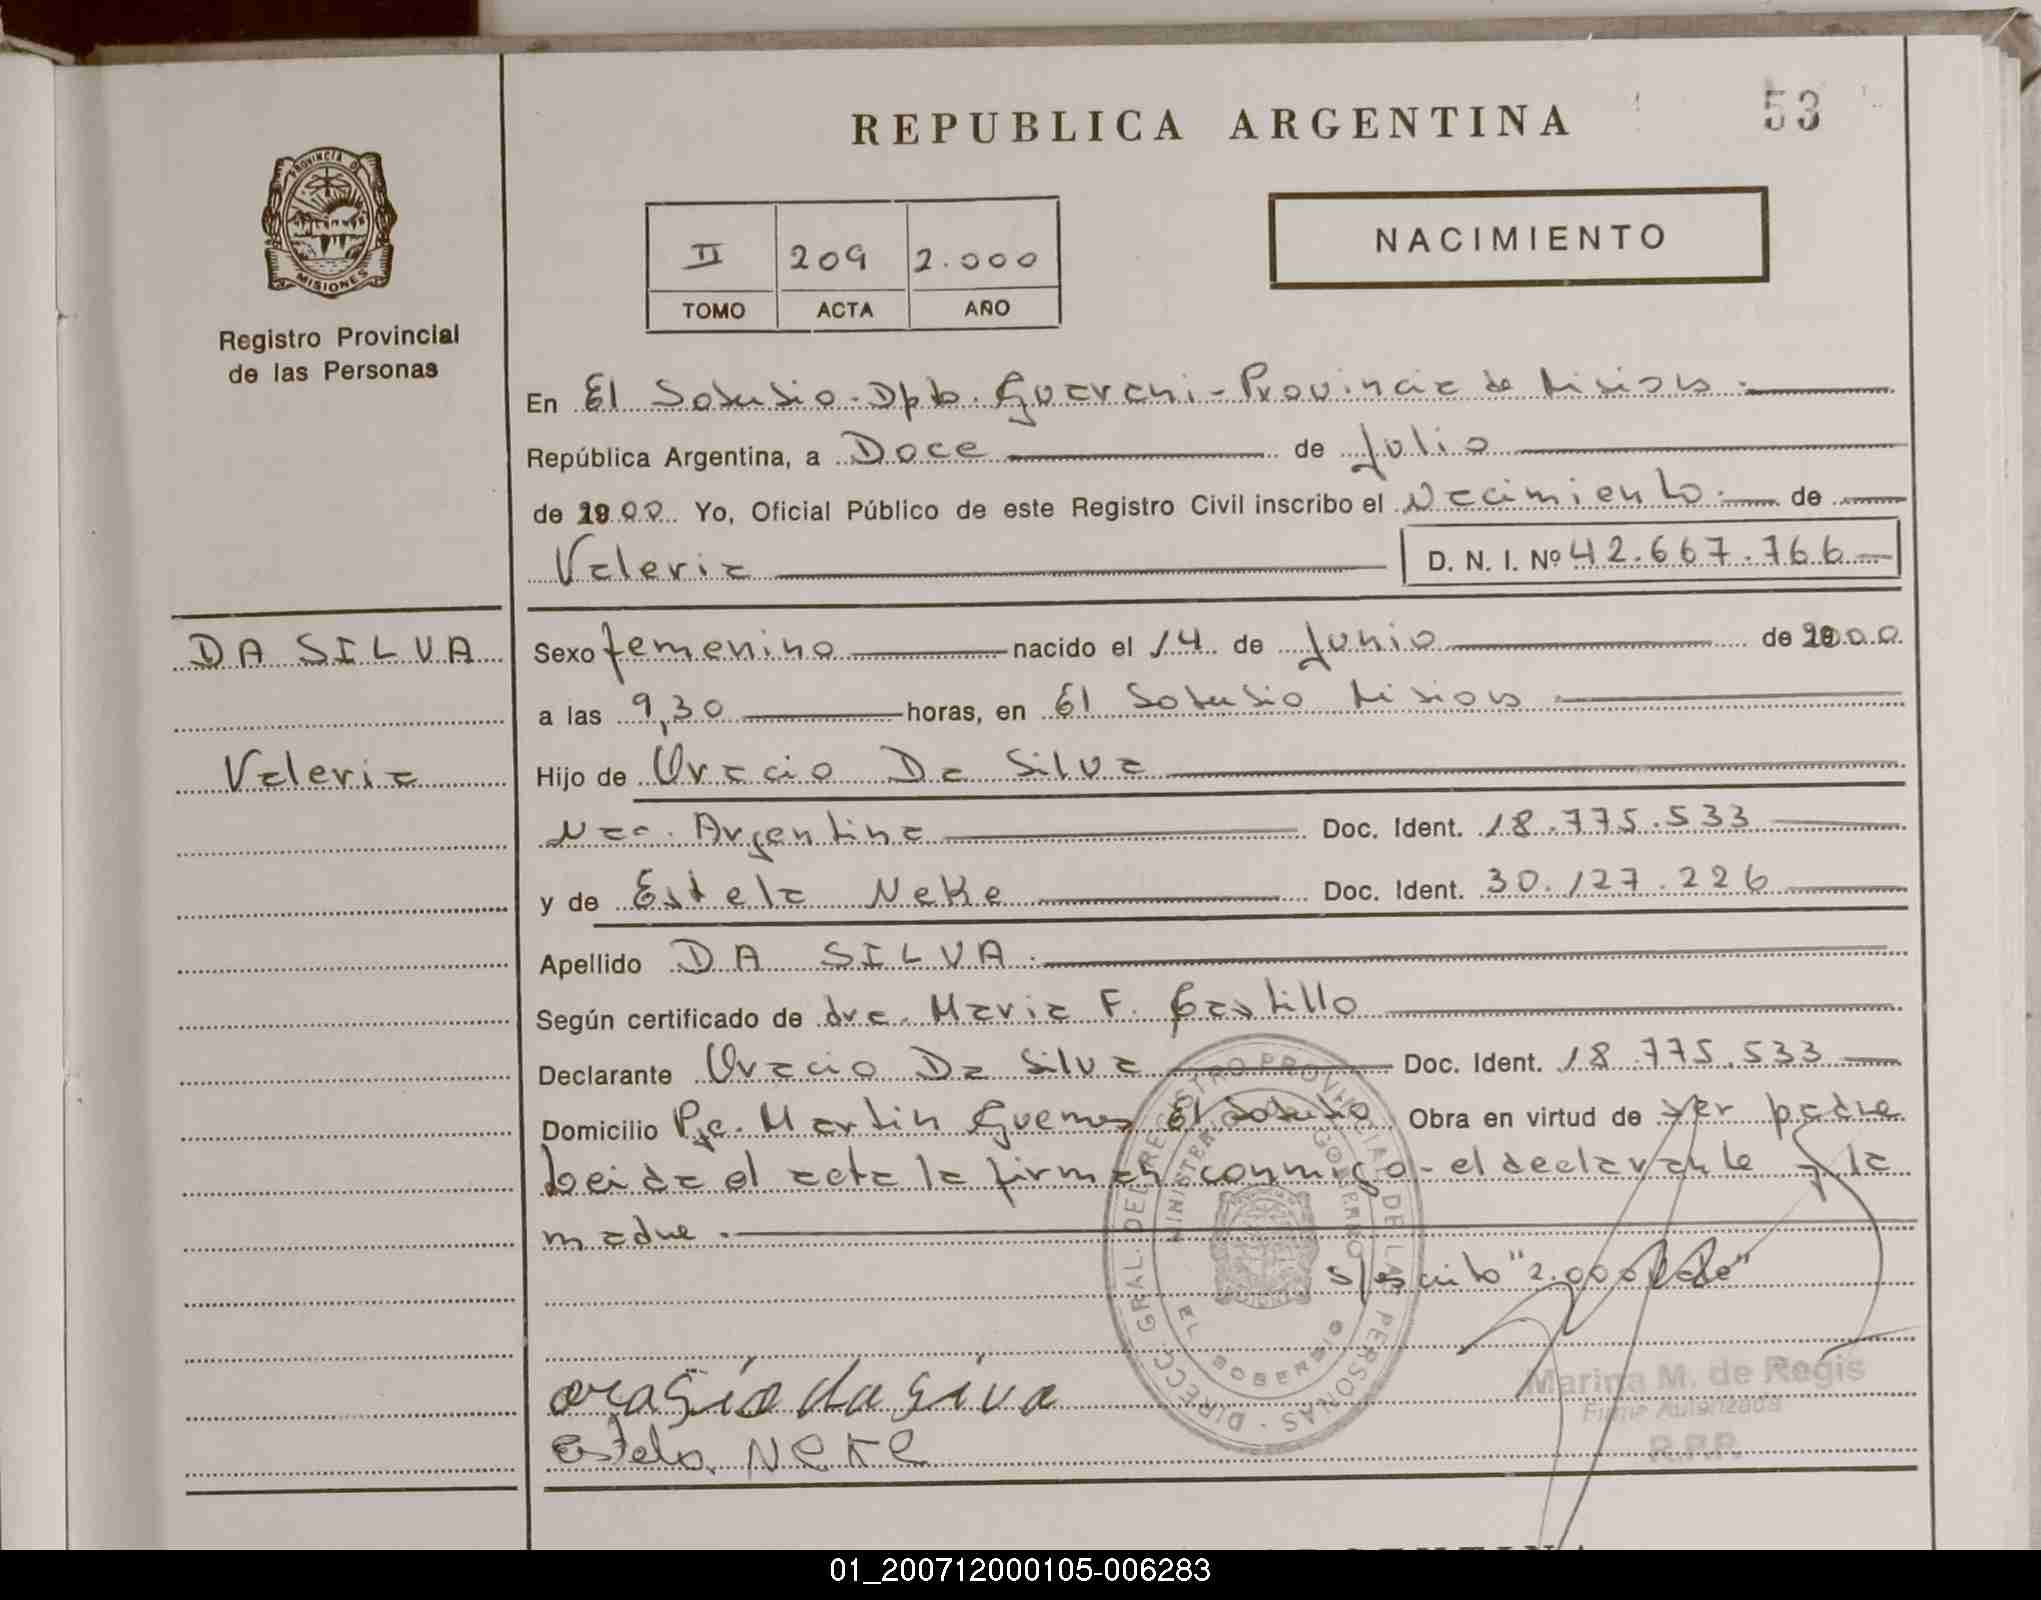 REPUBLICA ARGENTINA
53
PROVINCIA DE
MISIONES
Registro Provincial
de las Personas
II 209 2.000
TOMO ACTA AÑO
NACIMIENTO
En El Soberbio - Dpto. Guarani - Provincia de Misiones.
República Argentina, a Doce de Julio
de 2000 Yo, Oficial Público de este Registro Civil inscribo el Nacimiento. de
Valeria D. N. I. Nº 42.667.766
DA SILVA
Valeria
Sexo femenino nacido el 14 de Junio de 2000
a las 9,30 horas, en El Soberbio Misiones
Hijo de Oracio Da Silva
Nac. Argentina Doc. Ident. 18.775.533
y de Estela Neke Doc. Ident. 30.127.226
Apellido DA SILVA.
Según certificado de dra. Maria F. Castillo
Declarante Oracio Da Silva Doc. Ident. 18.775.533
Domicilio Pje. Martin Guemes El Soberbio Obra en virtud de ser padre
Leida el acta la firman conmigo - el declarante y la
madre.
s/escrito "2.000"
DIRECC. GRAL. DEL REGISTRO PROVINCIAL DE LAS PERSONAS
MINISTERIO GOBIERNO
EL SOBERBIO
orasio da siva
Estela Neke
Marina M. de Regis
Firma Autorizada
R.P.P.
01_200712000105-006283